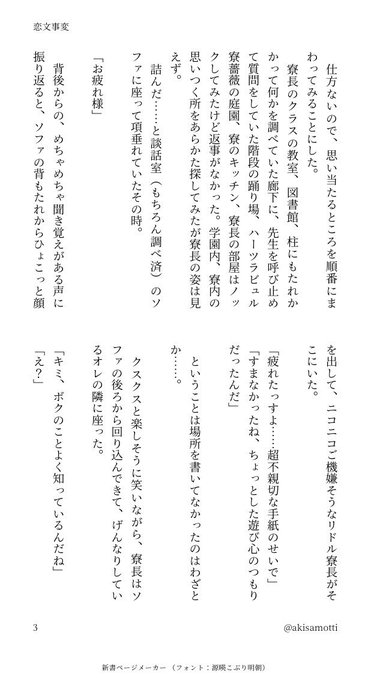 恋文事変
仕方ないので、思い当たるところを順番にま
わってみることにした。
寮長のクラスの教室、図書館、柱にもたれか
かって何かを調べていた廊下に、先生を呼び止め
て質問をしていた階段の踊り場、ハーツラビュル
寮薔薇の庭園、寮のキッチン、寮長の部屋はノッ
クしてみたけど返事がなかった。学園内、寮内の
思いつく所をあらかた探してみたが寮長の姿は見
えず。
詰んだ……と談話室（もちろん調べ済）のソ
ファに座って項垂れていたその時。
「お疲れ様」
背後からの、めちゃめちゃ聞き覚えがある声に
振り返ると、ソファの背もたれからひょこっと顔
を出して、ニコニコご機嫌そうなリドル寮長がそ
こにいた。
「疲れたっすよ……超不親切な手紙のせいで」
「すまなかったね、ちょっとした遊び心のつもり
だったんだ」
ということは場所を書いてなかったのはわざと
か……。
クスクスと楽しそうに笑いながら、寮長はソ
ファの後ろから回り込んできて、げんなりしてい
るオレの隣に座った。
「キミ、ボクのことよく知っているんだね」
「え？」
3
@akisamotti
新書ページメーカー（フォント：源暎こぶり明朝）